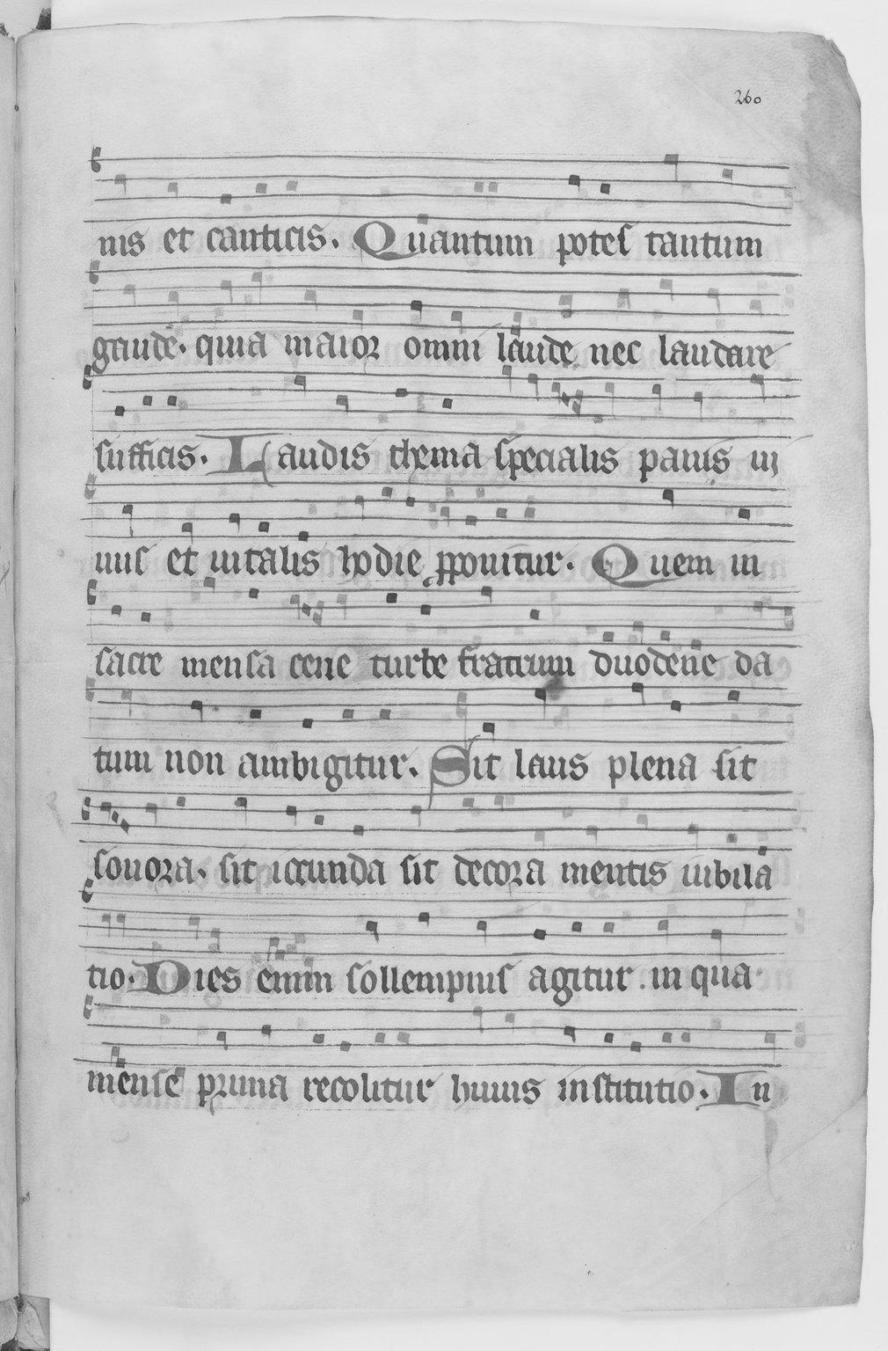 260
nis et canticis. Quantum potes tantum
gaude. quia maior omni laude nec laudare
sufficis. Laudis thema specialis panis ui
uus et uitalis hodie pponitur. Quem in
sacre mensa cene turbe fratrum duodene da
tum non ambigitur. Sit laus plena sit
sonora. sit iocunda sit decora mentis iubila
tio. Dies enim sollempnis agitur in qua
mense prima recolitur huius institutio. In